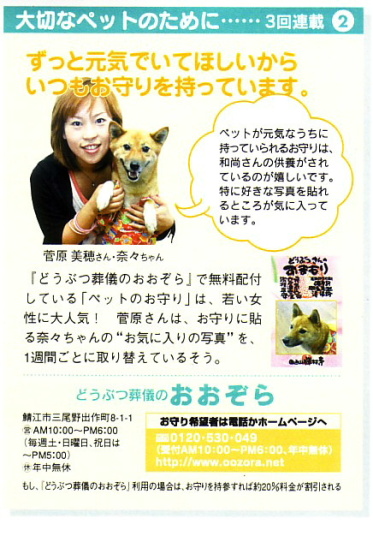 大切なペットのために…… 3回連載 ②
ずっと元気でいてほしいから
いつもお守りを持っています。
ペットが元気なうちに
持っていられるお守りは、
和尚さんの供養がされ
ているのが嬉しいです。
特に好きな写真を貼れ
るところが気に入って
います。
菅原 美穂さん・奈々ちゃん
『どうぶつ葬儀のおおぞら』で無料配付
している「ペットのお守り」は、若い女
性に大人気! 菅原さんは、お守りに貼
る奈々ちゃんの“お気に入りの写真”を、
1週間ごとに取り替えているそう。
どうぶつさんの
おまもり
どうぶつ葬儀の おおぞら
鯖江市三尾野出作町8-1-1
営AM10:00~PM6:00
(毎週土・日曜日、祝日は
~PM5:00)
休年中無休
お守り希望者は電話かホームページへ
0120-530-049
(受付AM10:00~PM6:00、年中無休)
http://www.oozora.net
もし、「どうぶつ葬儀のおおぞら」利用の場合は、お守りを持参すれば約20%料金が割引される